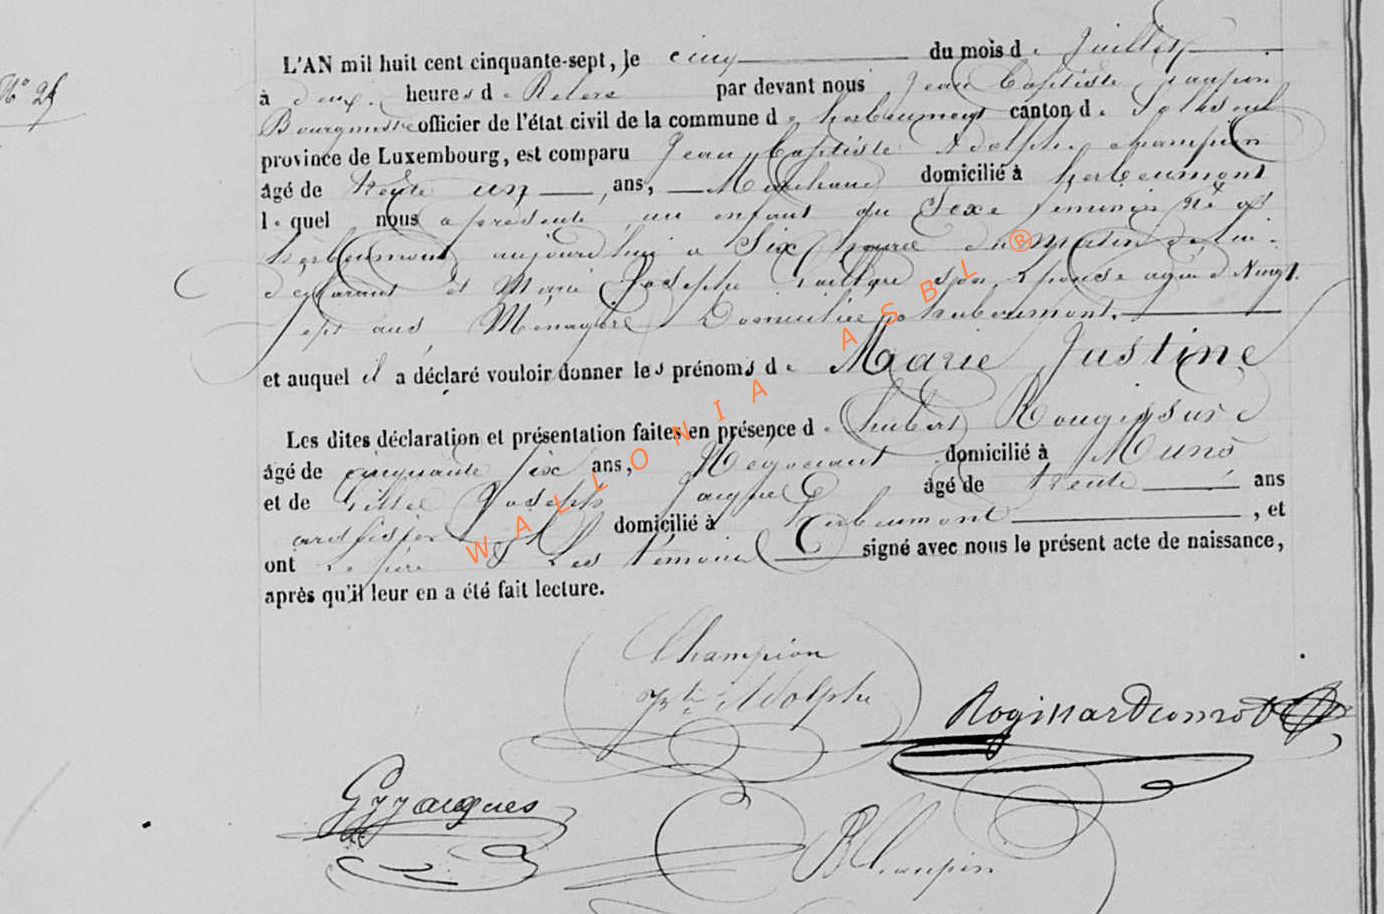 N° 25
L'AN mil huit cent cinquante-sept, le cinq du mois de Juillet
à deux heures de Relevé par devant nous Jean Baptiste
Bourgmestre officier de l'état civil de la commune de herbeumont canton de
province de Luxembourg, est comparu Jean Baptiste Adolphe champion
âgé de trente un ans, Marchand domicilié à herbeumont
lequel nous a présenté un enfant du Sexe féminin né à
herbeumont aujourd'hui a Six heures du Matin de lui
declarant et Marie Josephe son Epouse agée de Vingt
Sept ans, Menagère Domiciliée a herbeumont,
et auquel il a déclaré vouloir donner les prénoms de Marie Justine
Les dites déclaration et présentation faites en présence de hubert
âgé de cinquante Six ans, Négociant domicilié à Muno
et de Joseph Jacques âgé de trente ans
ardoisier domicilié à herbeumont, et
ont Le père et Les témoins signé avec nous le présent acte de naissance,
après qu'il leur en a été fait lecture.
Champion
Jn Bte Adolphe
GJJacques
WALLONIA ASBL ®